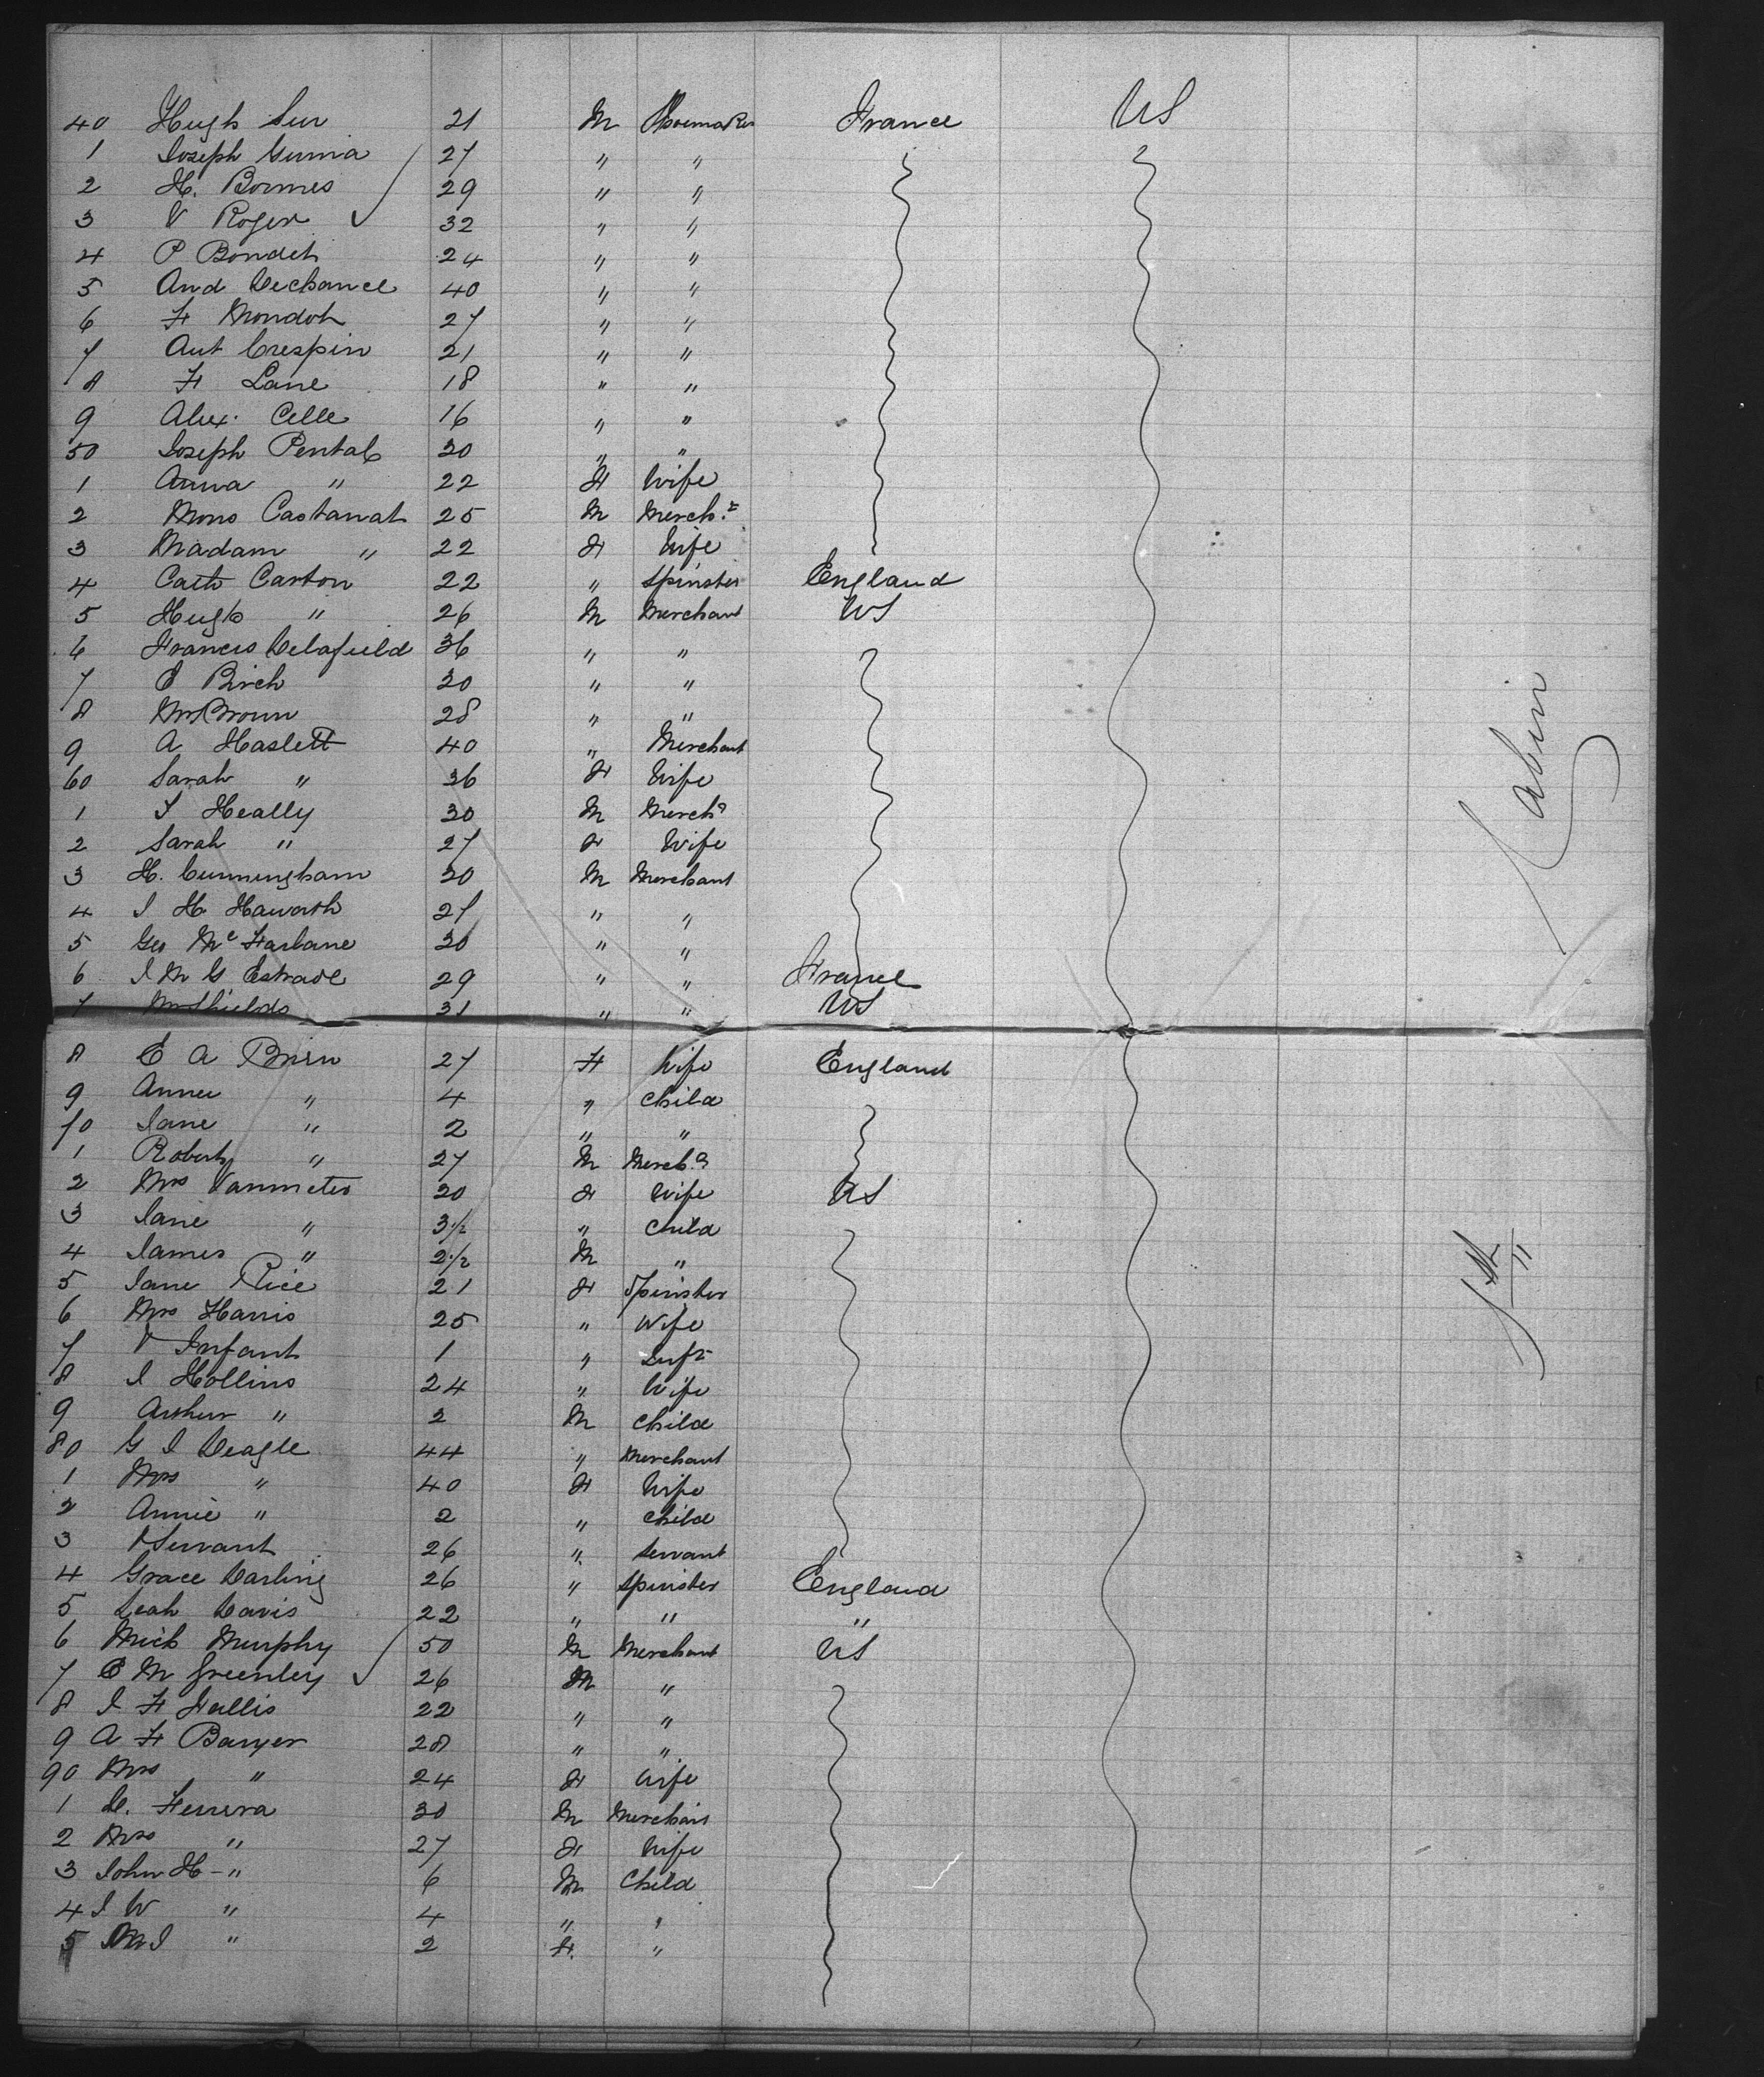 40 Hugh Sur 21 M Shoemaker France US
1 Joseph Guma 27 " "
2 H. Bormes 29 " "
3 V Roger 32 " "
4 P Bondet 24 " "
5 And Dechance 40 " "
6 F Mondot 27 " "
7 Ant Crespin 21 " "
8 F Lane 18 " "
9 Alex. Celle 16 " "
50 Joseph Pental 30 " "
1 Anna " 22 F Wife
2 Mons Castanat 25 M Merch.t
3 Madam " 22 F Wife
4 Cath Carton 22 " Spinster England
5 Hugh " 26 M Merchant US
6 Francis Delafield 36 " "
7 E Birch 30 " "
8 Wm Brown 28 " "
9 A Haslett 40 " Merchant
60 Sarah " 36 F Wife
1 J Heally 30 M Merch.t
2 Sarah " 27 F Wife
3 H. Cunningham 30 M Merchant
4 J H Haworth 27 " "
5 Geo McFarlane 30 " "
6 J M G Estrade 29 " " France
7 Wm Shields 31 " " US
8 E A Brien 27 F Wife England
9 Annie " 4 " Child
70 Jane " 2 " "
1 Robert " 27 M Merch.t
2 Mrs Vanmeter 30 F Wife US
3 Jane " 3 1/2 " Child
4 James " 2 1/2 M "
5 Jane Rice 21 F Spinster
6 Mrs Harris 25 " Wife
7 & Infant 1 " Inft
8 J Hollins 24 " Wife
9 Arthur " 2 M Child
80 G J Deagle 44 " Merchant
1 Mrs " 40 F Wife
2 Annie " 2 " Child
3 & Servant 26 " Servant
4 Grace Darling 26 " Spinster England
5 Leah Davis 22 " " "
6 Mich Murphy 50 M Merchant US
7 E M Greenley 26 M "
8 J F Fallis 22 " "
9 A F Banyer 28 " "
90 Mrs " 24 F Wife
1 D. Ferrera 30 M Merchant
2 Mrs " 27 F Wife
3 John H - " 6 M Child
4 J W " 4 " "
5 M J " 2 F. "
Cabin
1st "